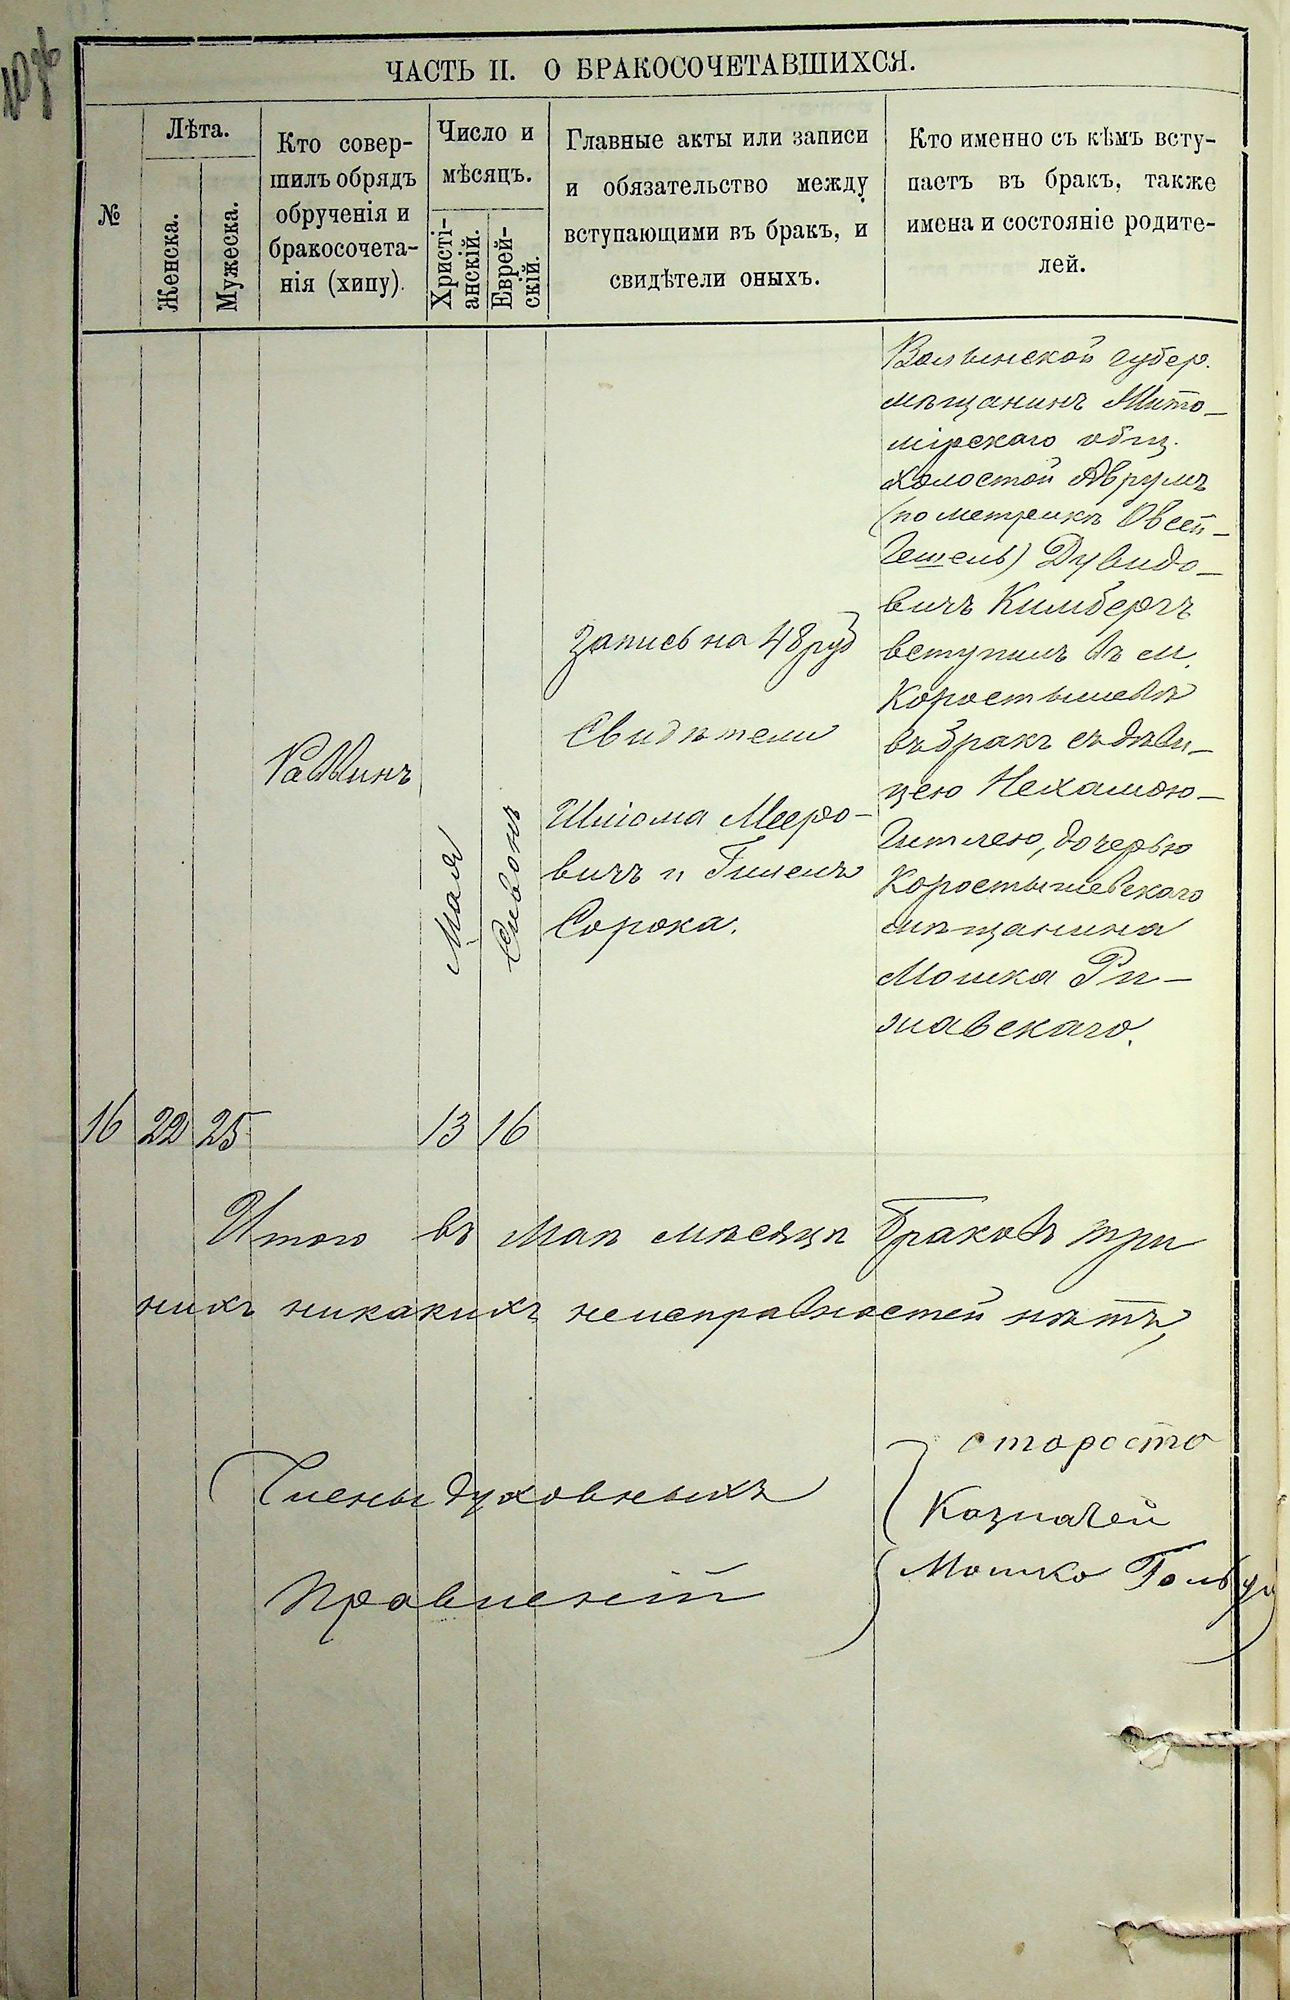 ЧАСТЬ II. О БРАКОСОЧЕТАВШИХСЯ.
№
Лѣта.
Женска.
Мужеска.
Кто совер-
шилъ обрядъ
обрученія и
бракосочета-
нія (хипу).
Число и
мѣсяцъ.
Христі-
анскій.
Еврей-
скій.
Главные акты или записи
и обязательство между
вступающими въ бракъ, и
свидѣтели оныхъ.
Кто именно съ кѣмъ всту-
паетъ въ бракъ, также
имена и состояніе родите-
лей.
16
22
25
Раввинъ
13
Мая
16
Сивонъ
Запись на 48 руб
Свидѣтели
Шліома Мееро-
вичъ и
Сорока.
Волынской губер.
мѣщанинъ Жито-
мірскаго общ.
холостой Аврумъ
(по метрикѣ Овсей-
Гешель) Дувидо-
вичъ Кимбергъ
вступилъ въ м.
Коростышевѣ
въ бракъ съ дѣви-
цею Нехамою-
Гитлею, дочерью
Коростышевскаго
мѣщанина
Мошка Ри-
жавскаго.
Итого въ Маѣ мѣсяцѣ браковъ три
нихъ никакихъ неисправностей нѣтъ,
Члены духовныхъ
правленій
староста
Казначей
Мошко